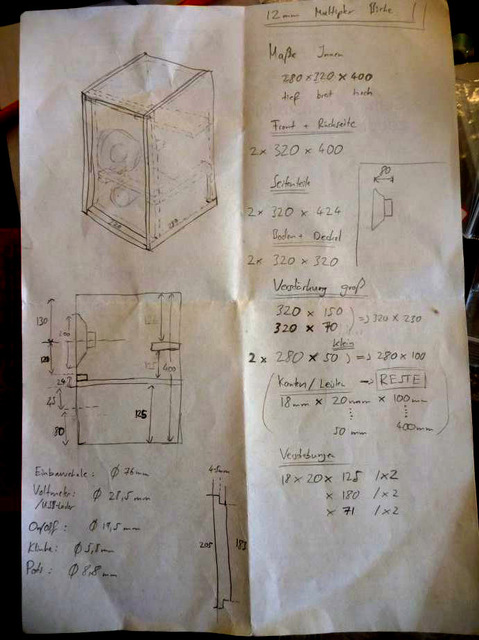 12mm Multiplex Birke
Maße Innen
280 x 320 x 400
tief breit hoch
Front + Rückseite
2x 320 x 400
80
Seitenteile
2x 320 x 424
Boden + Deckel
2x 320 x 320
Verstärkung groß
320 x 150
320 x 70 => 320 x 230
klein
2x 280 x 50 => 280 x 100
Kanten / Leisten → RESTE
18mm x 20mm x 100mm
50 mm 400mm
Verstrebungen
18 x 20 x 125 /x2
x 180 /x2
x 71 /x2
130
120
24
45
80
125
400
125
Einbauschale: Ø 76mm
Voltmeter: Ø 28,5mm
/USB-Lader
On/Off: Ø 19,5mm
Klinke: Ø 5,8mm
Poti: Ø 8,8mm
205